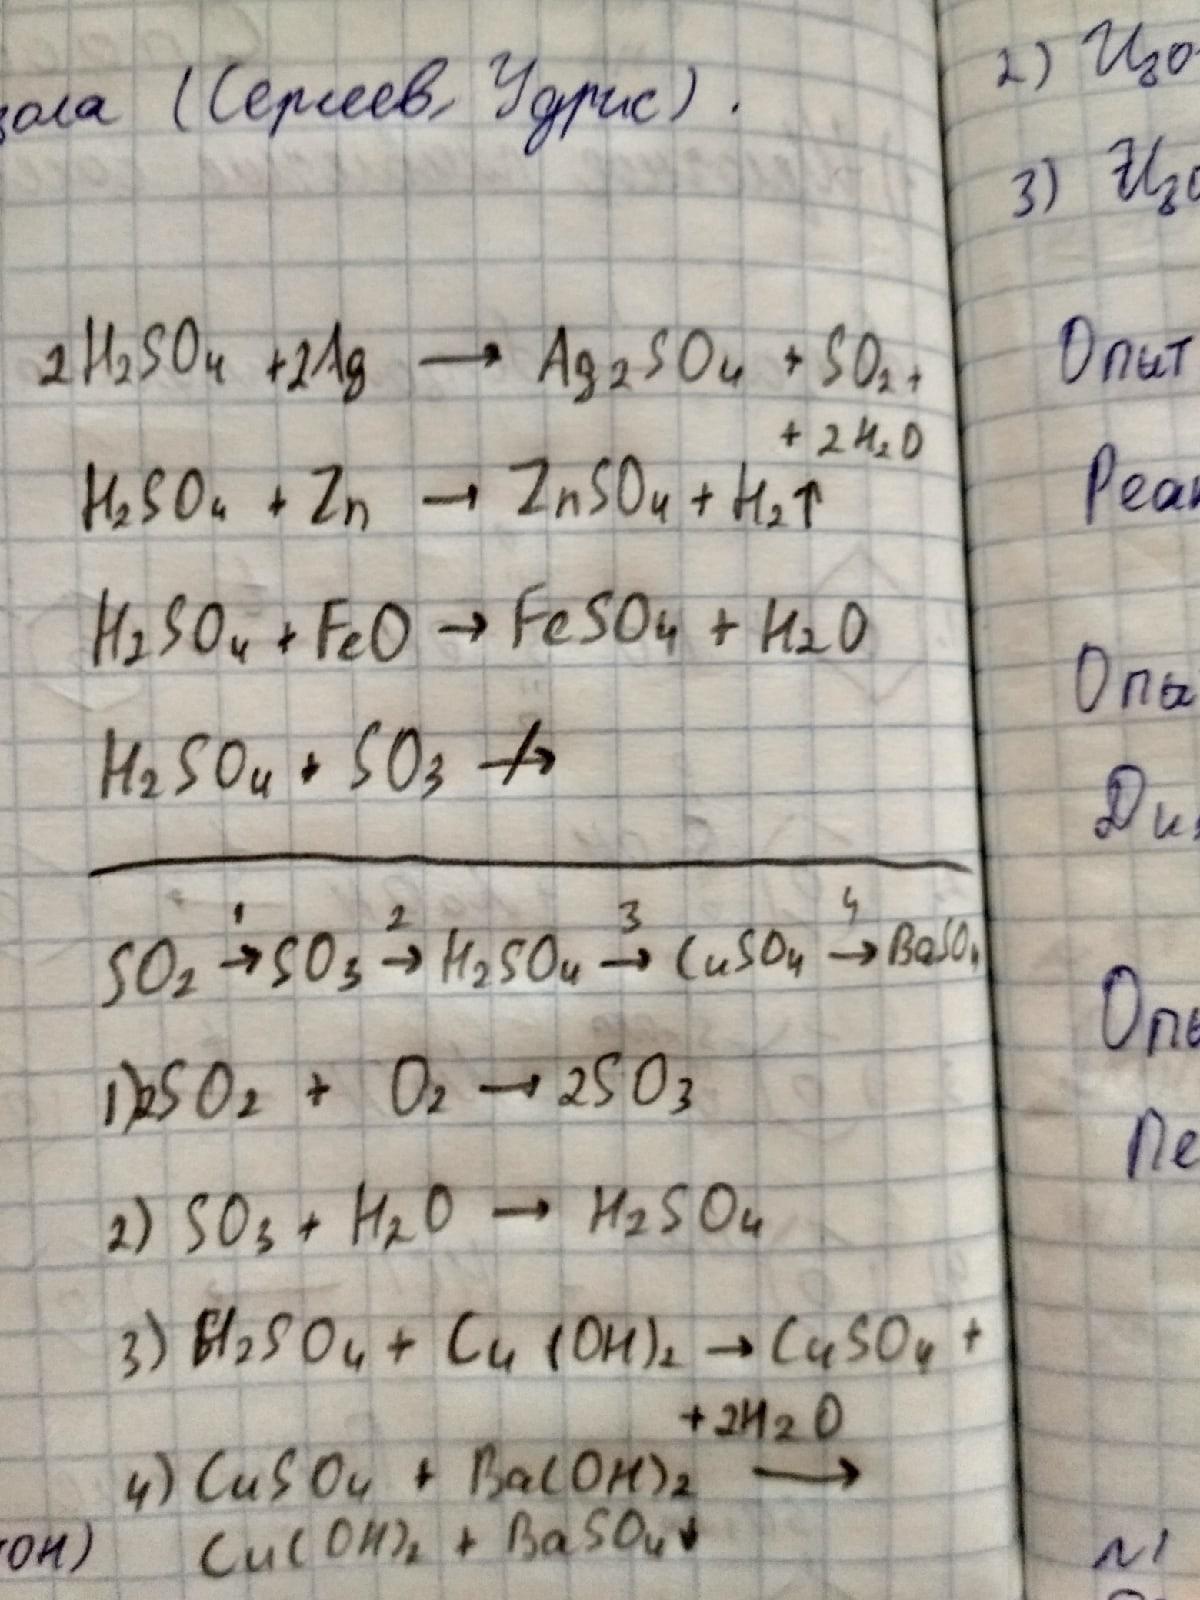 (Сергеев, Удрис).
2H₂SO₄ + 2Ag → Ag₂SO₄ + SO₂ +
+ 2H₂O
H₂SO₄ + Zn → ZnSO₄ + H₂↑
H₂SO₄ + FeO → FeSO₄ + H₂O
H₂SO₄ + SO₃ ↛
1 2 3 4
SO₂ → SO₃ → H₂SO₄ → CuSO₄ → BaSO₄
1) 2SO₂ + O₂ → 2SO₃
2) SO₃ + H₂O → H₂SO₄
3) H₂SO₄ + Cu(OH)₂ → CuSO₄ +
+ 2H₂O
4) CuSO₄ + Ba(OH)₂ →
Cu(OH)₂ + BaSO₄↓
OH)
2)
3)
Опыт
N1